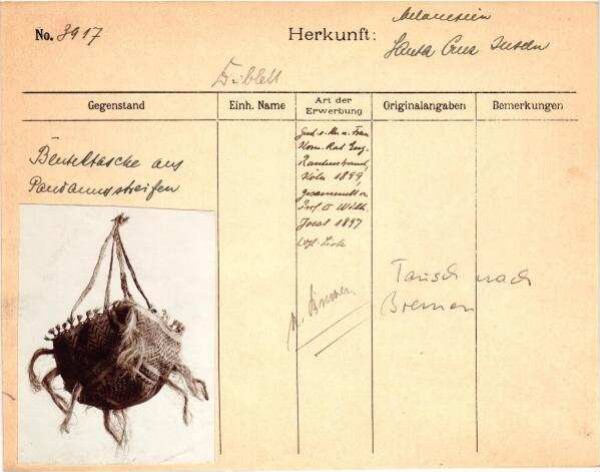 No. 3917
Herkunft: Melanesien
Santa Cruz Inseln
Gegenstand
Einh. Name
Art der Erwerbung
Originalangaben
Bemerkungen
Beuteltasche aus
Pandanusstreifen
Gesch. v. Hn. u. Frau
Kom. Rat Eug.
Rautenstrauch,
Köln 1899,
gesammelt v.
Prof. Dr. Wilh.
Joest 1897
Tausch nach
Bremen
n. Bremen